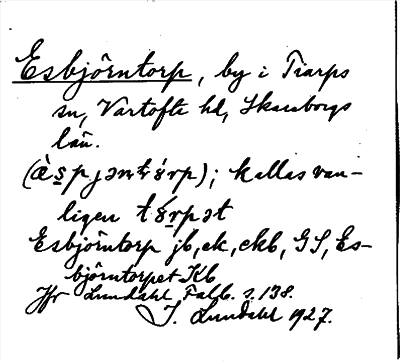 Esbjörntorp, by i Tiarps
sn, Vartofta hd, Skaraborgs
län.
(èspjəntórp); kallas van-
ligen tórpət
Esbjörntorp jb, ek, ekb, GS, Es-
björntorpet Kb
Jfr Lundahl Falb. s. 138.
I. Lundahl 1927.